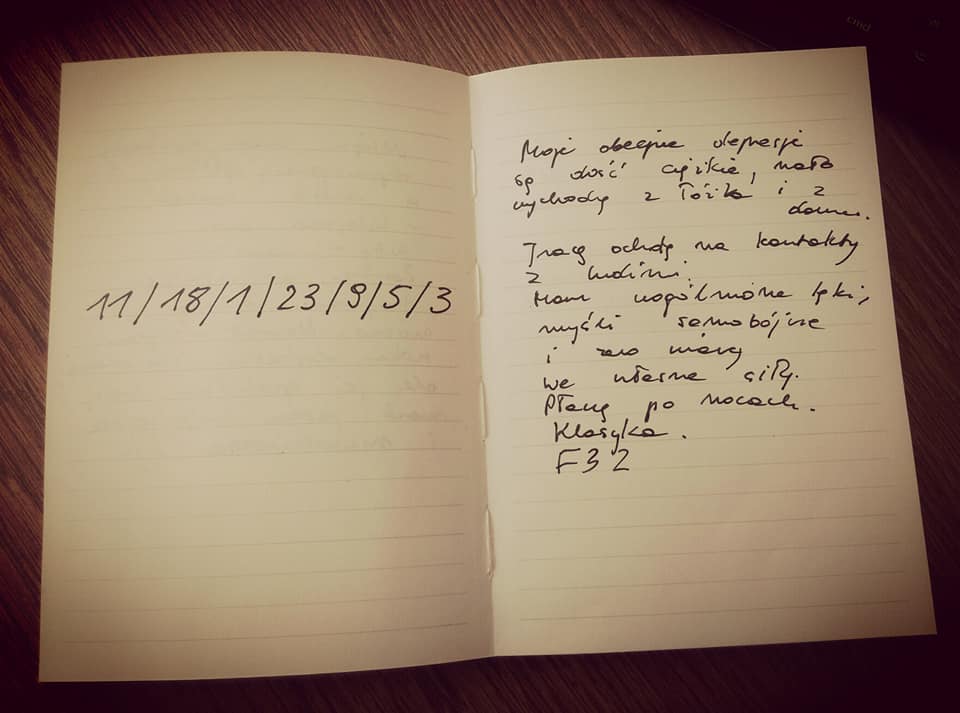 11/18/1/23/9/5/3
Moje obecne depresje
są dość ciężkie, mało
wychodzę z łóżka i z
domu.
Tracę ochotę na kontakty
z ludźmi.
Mam uogólnione lęki,
myśli samobójcze
i zero wiary
we własne siły.
Płaczę po nocach.
Klasyka.
F32
cmd